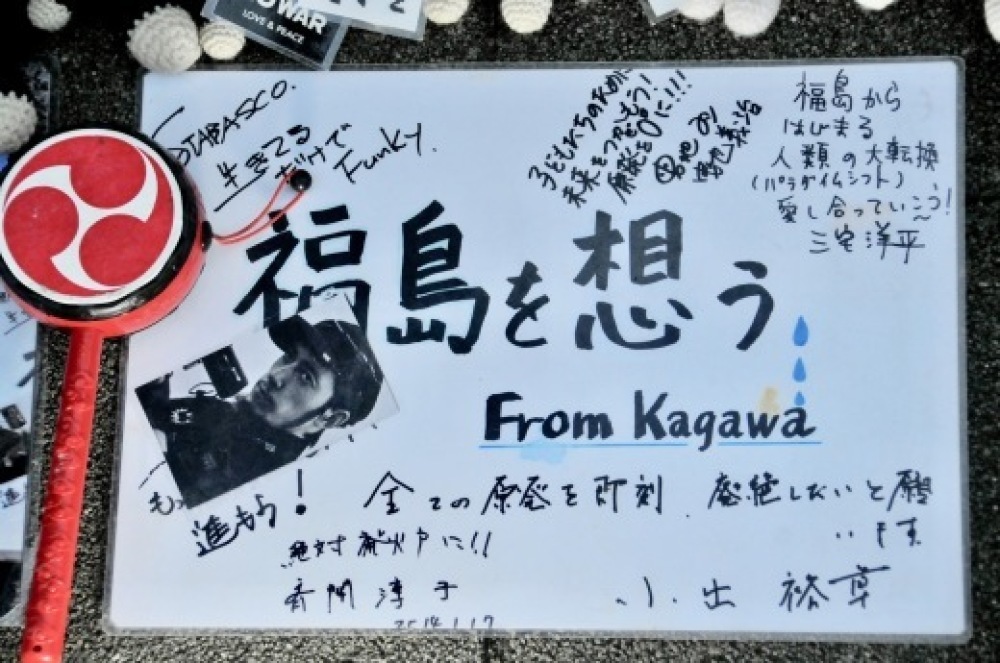 WAR
LOVE & PEACE
TABASCO.
生きてる
だけで
Funky.
子どもたちのために
未来をつかもう!
原発を0に!!!
福島から
はじまる
人類の大転換
(パラダイムシフト)、
愛し合っていこう!
三宅洋平
福島を想う
From Kagawa
もっ
進もう!
全ての原発を即刻、廃絶したいと願
います
絶対廃炉に!!
小出 裕章